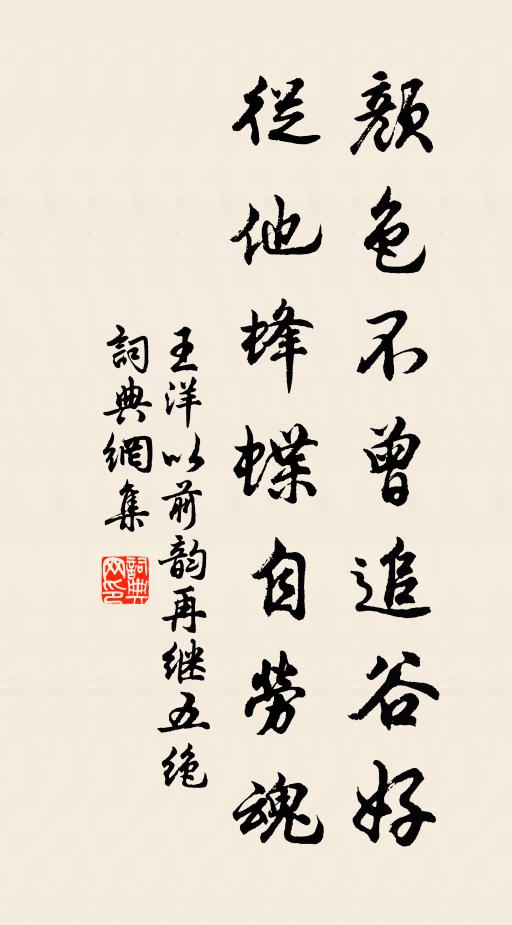 顏色不曾追谷好
從他蜂蝶自勞魂
王洋以前韵再继五绝
詞典網集
詞典网印